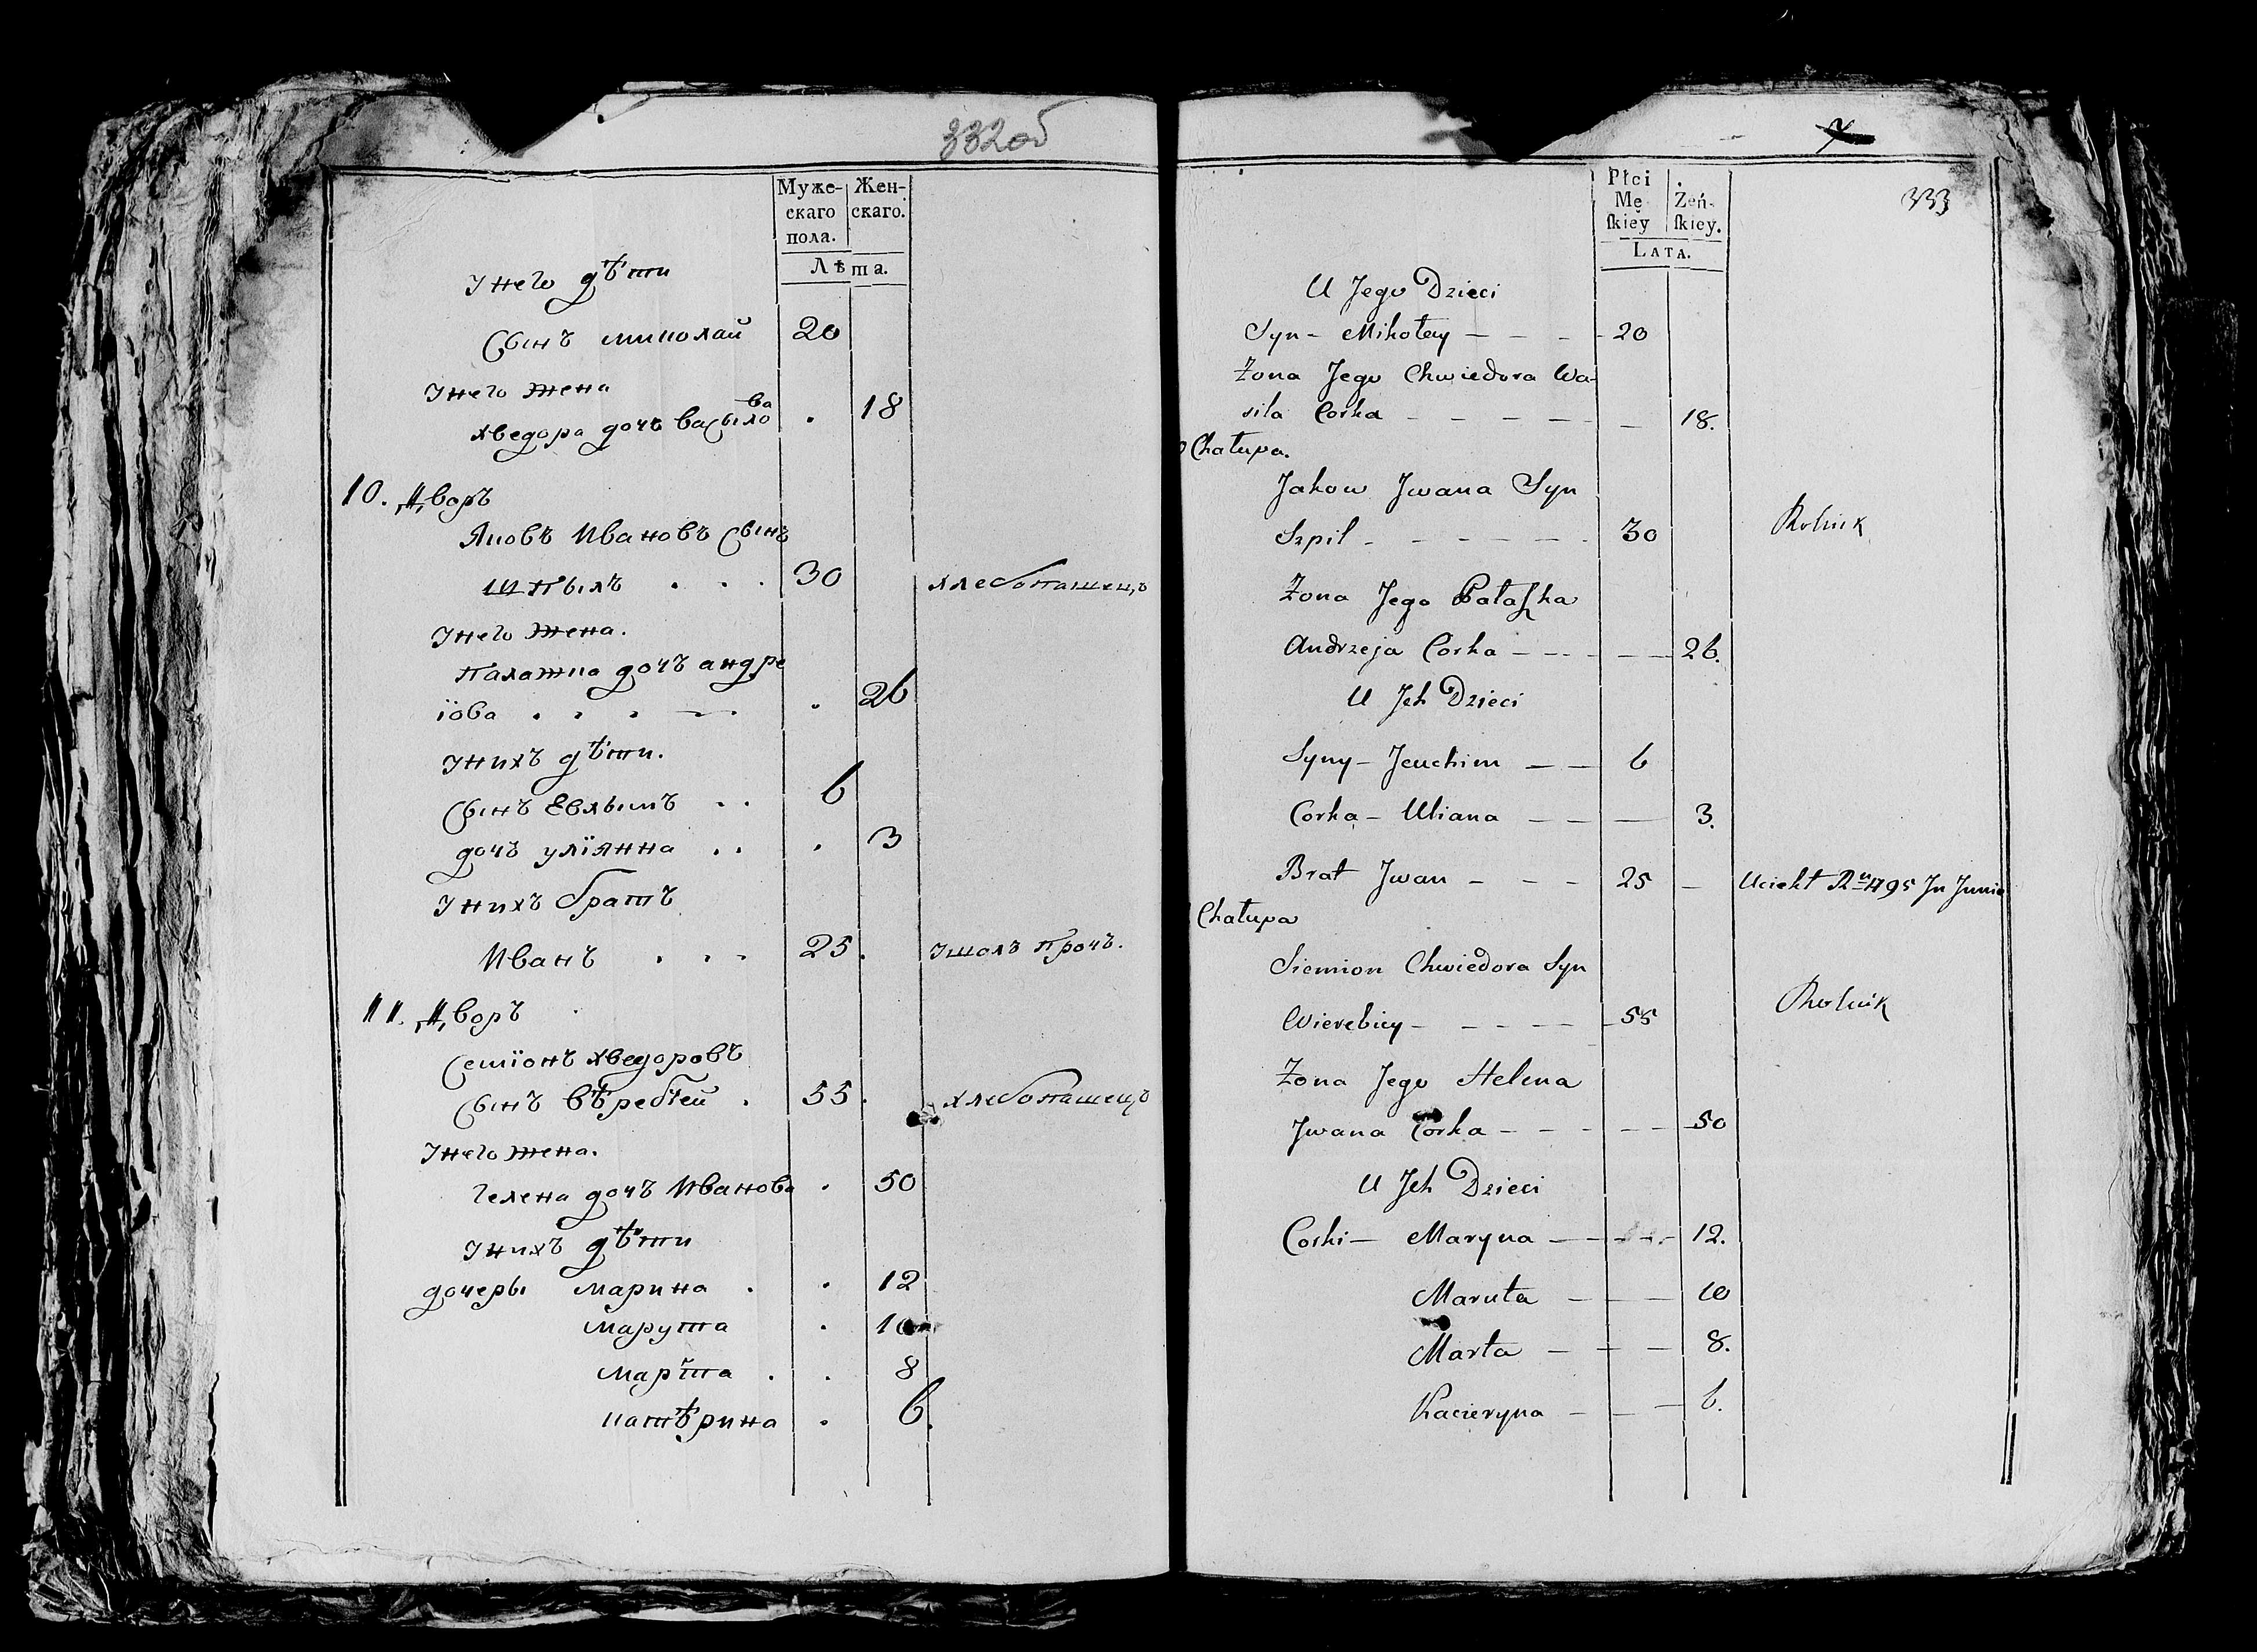 332об
Муже- Жен-
скаго скаго.
пола.
Лѣта.
Унего дѣти
Сынъ миколай 20
Унего жена
хведора дочъ васылова . 18
10. Дворъ
Яковъ Ивановъ Сынъ
шпыль . . . 30 хлебопашецъ
Унего жена.
Палажка дочъ андре
їова . . . . 26
Унихъ дѣти.
Сынъ Евхымъ . . 6
дочъ улїянна . . . 3
Унихъ братъ
Иванъ . . . 25. Ушолъ прочъ.
11. Дворъ
Семїонъ хведоровъ
Сынъ вѣребей . 55. хлебопашецъ
Унего жена.
Гелена дочъ Иванова . 50
Унихъ дѣти
дочеры марина . . 12
марута . 10
марта . . 8
катѣрина . 6.
7
333
Płci
Mę Żeń-
ſkiey ſkiey.
LATA.
U Jego Dzieci
Syn - Mikołay - - - - 20
Żona Jego Chwiedora Wa-
sila Corka - - - - - - 18.
Chałupa.
Jakow Jwana Syn
Szpil - - - - - - 30 Rolnik
Żona Jego Pałaſzka
Andrzeja Corka - - - - - 26.
U Jch Dzieci
Syny - Jeuchim - - 6
Corka - Uliana - - - 3.
Brat Jwan - - - 25 - Uciekł R​u 1795 Jn Junio
Chałupa
Siemion Chwiedora Syn
Wierebiey - - - - - 55 Rolnik
Żona Jego Helena
Jwana Corka - - - - - 50
U Jch Dzieci
Corki - Maryna - - - - 12.
Maruta - - - 10
Marta - - - 8.
Kacieryna - - - 6.